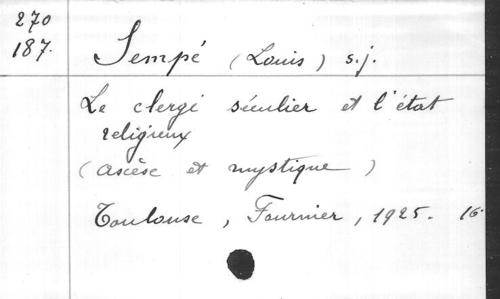 270
187.
Sempé (Louis) s.j.
Le clergé séculier et l'état
religieux
(ascèse et mystique)
Toulouse, Fournier, 1925. 16